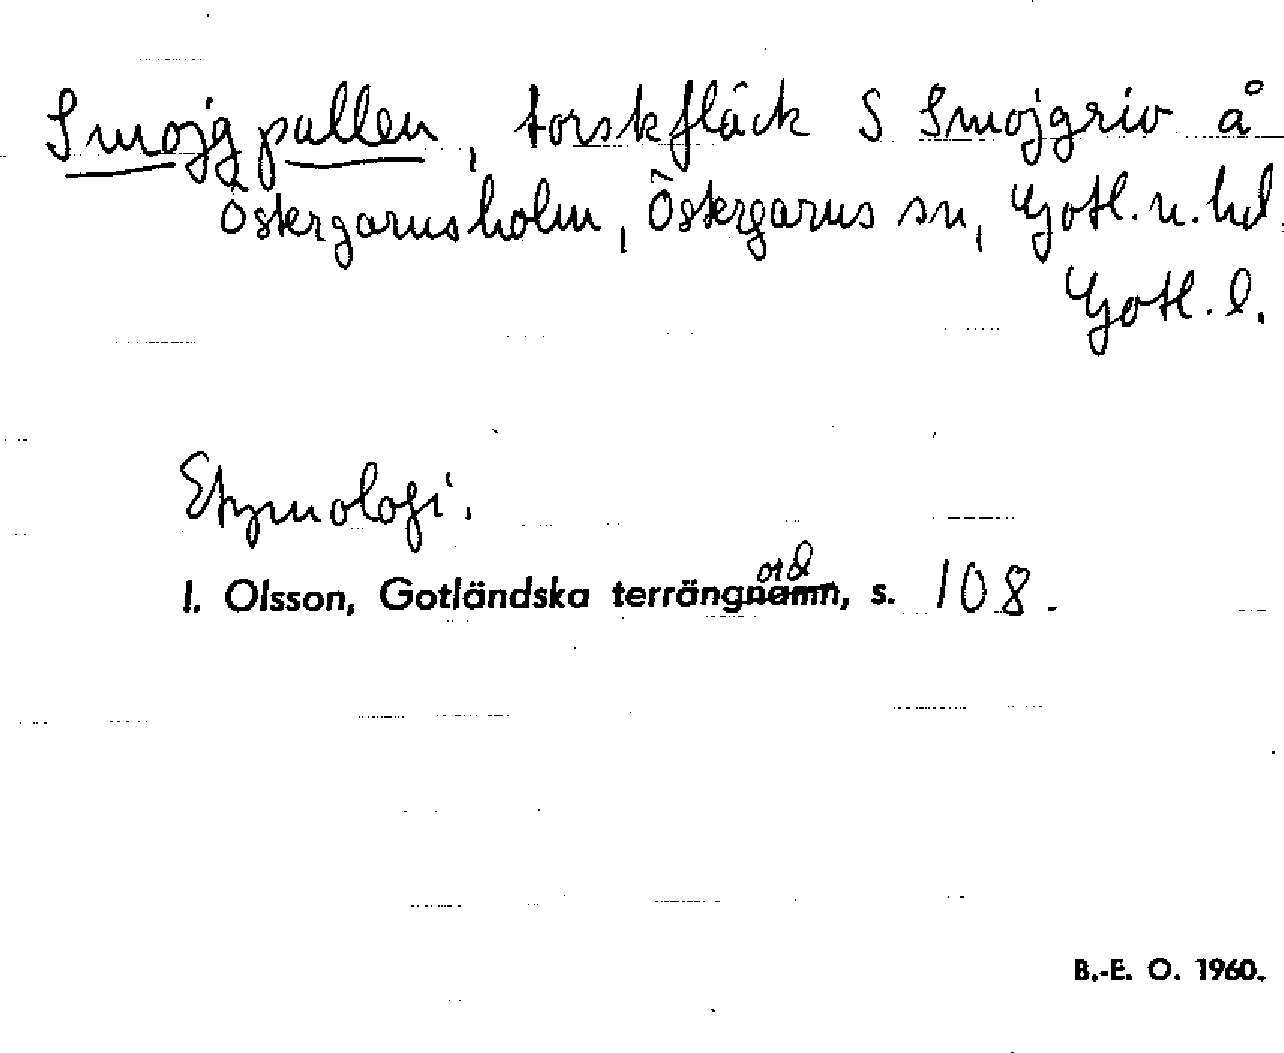 Smojgpallen, torskfläck S Smojgriv å
Östergarnsholm, Östergarns sn, Gotl. n. hd.
Gotl. l.
Etymologi.
I. Olsson, Gotländska terrängord, s. 108.
B.-E. O. 1960.